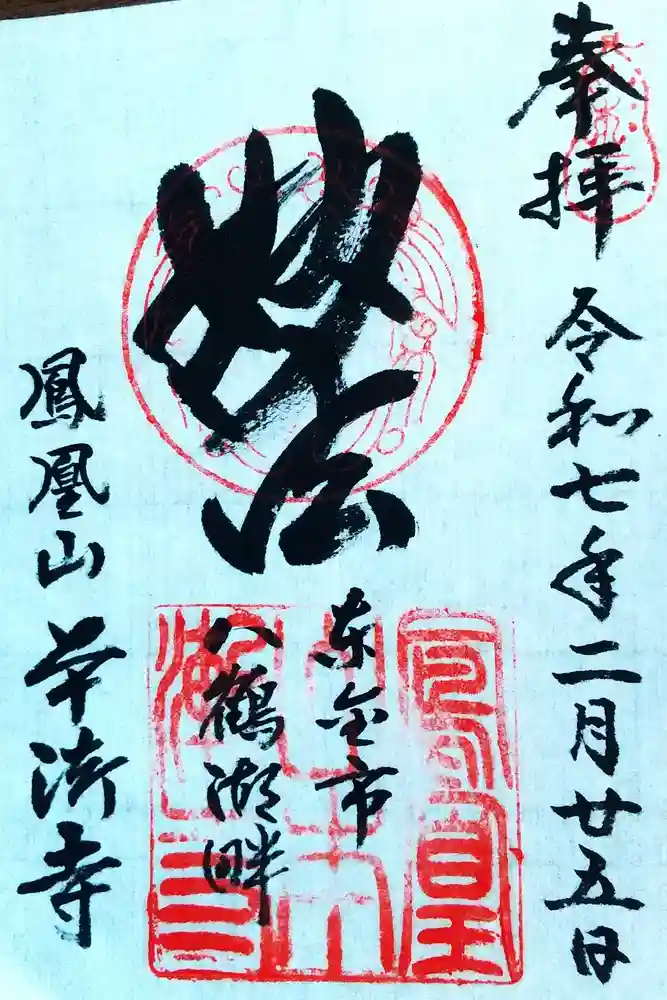 奉拝
令和七年二月廿五日
妙法
東金市
八鶴湖畔
鳳凰山
本漸寺